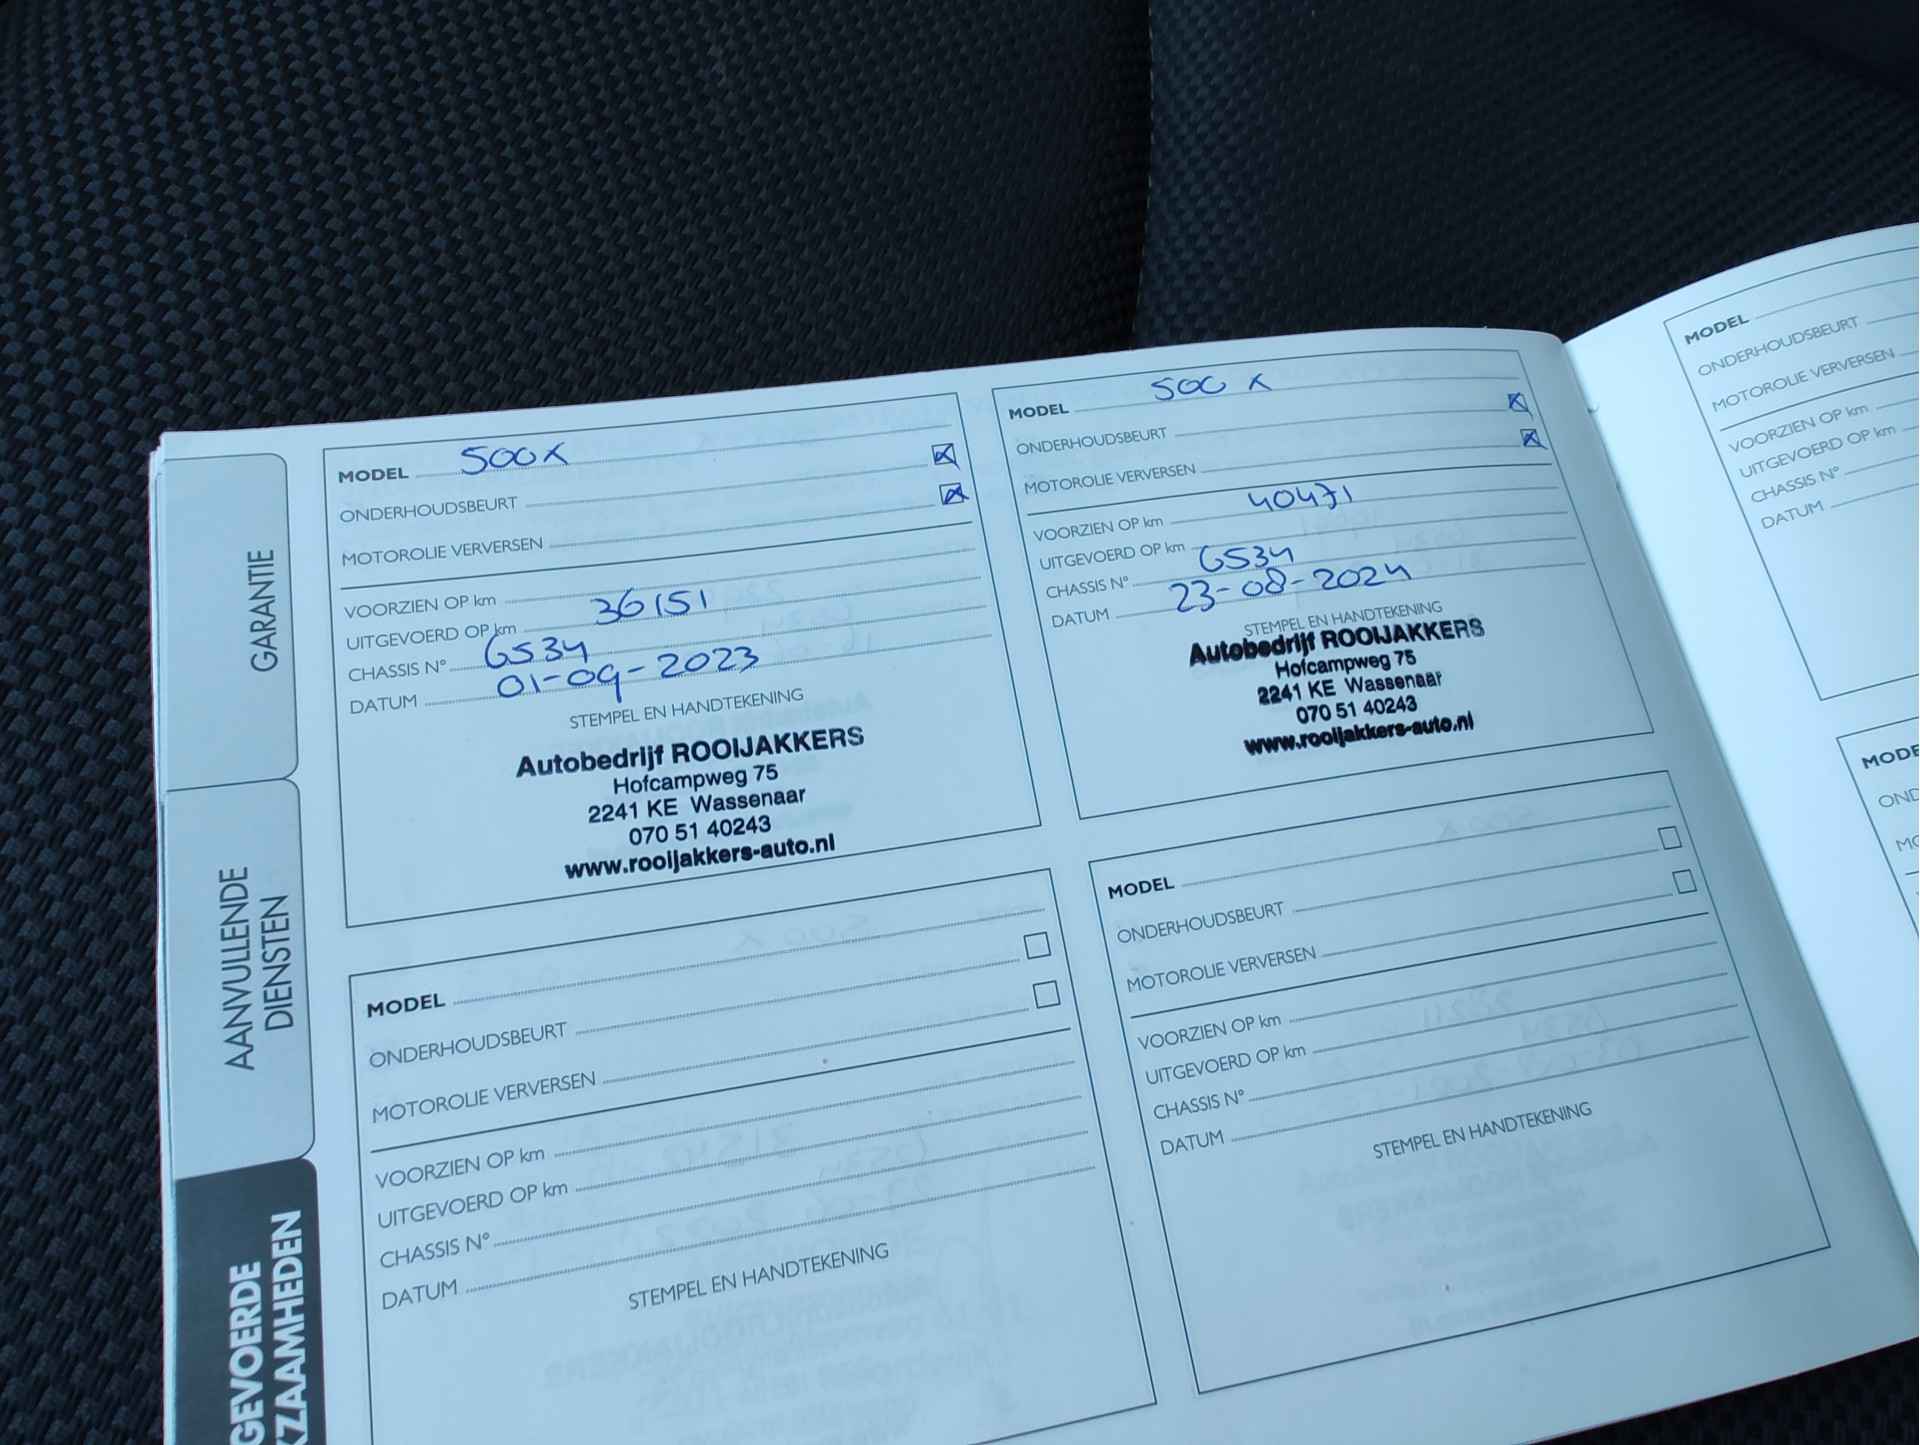 GARANTIE
AANVULLENDE
DIENSTEN
GEVOERDE
KZAAMHEDEN
MODEL 500X
ONDERHOUDSBEURT
MOTOROLIE VERVERSEN
VOORZIEN OP km
UITGEVOERD OP km 36151
CHASSIS N° 6534
DATUM 01-09-2023
STEMPEL EN HANDTEKENING
Autobedrijf ROOIJAKKERS
Hofcampweg 75
2241 KE Wassenaar
070 51 40243
www.rooijakkers-auto.nl
MODEL 500 X
ONDERHOUDSBEURT
MOTOROLIE VERVERSEN
VOORZIEN OP km 40471
UITGEVOERD OP km
CHASSIS N° 6534
DATUM 23-08-2024
STEMPEL EN HANDTEKENING
Autobedrijf ROOIJAKKERS
Hofcampweg 75
2241 KE Wassenaar
070 51 40243
www.rooijakkers-auto.nl
MODEL
ONDERHOUDSBEURT
MOTOROLIE VERVERSEN
VOORZIEN OP km
UITGEVOERD OP km
CHASSIS N°
DATUM
STEMPEL EN HANDTEKENING
MODEL
ONDERHOUDSBEURT
MOTOROLIE VERVERSEN
VOORZIEN OP km
UITGEVOERD OP km
CHASSIS N°
DATUM
STEMPEL EN HANDTEKENING
MODEL
ONDERHOUDSBEURT
MOTOROLIE VERVERSEN
VOORZIEN OP km
UITGEVOERD OP km
CHASSIS N°
DATUM
MODE
OND
MO